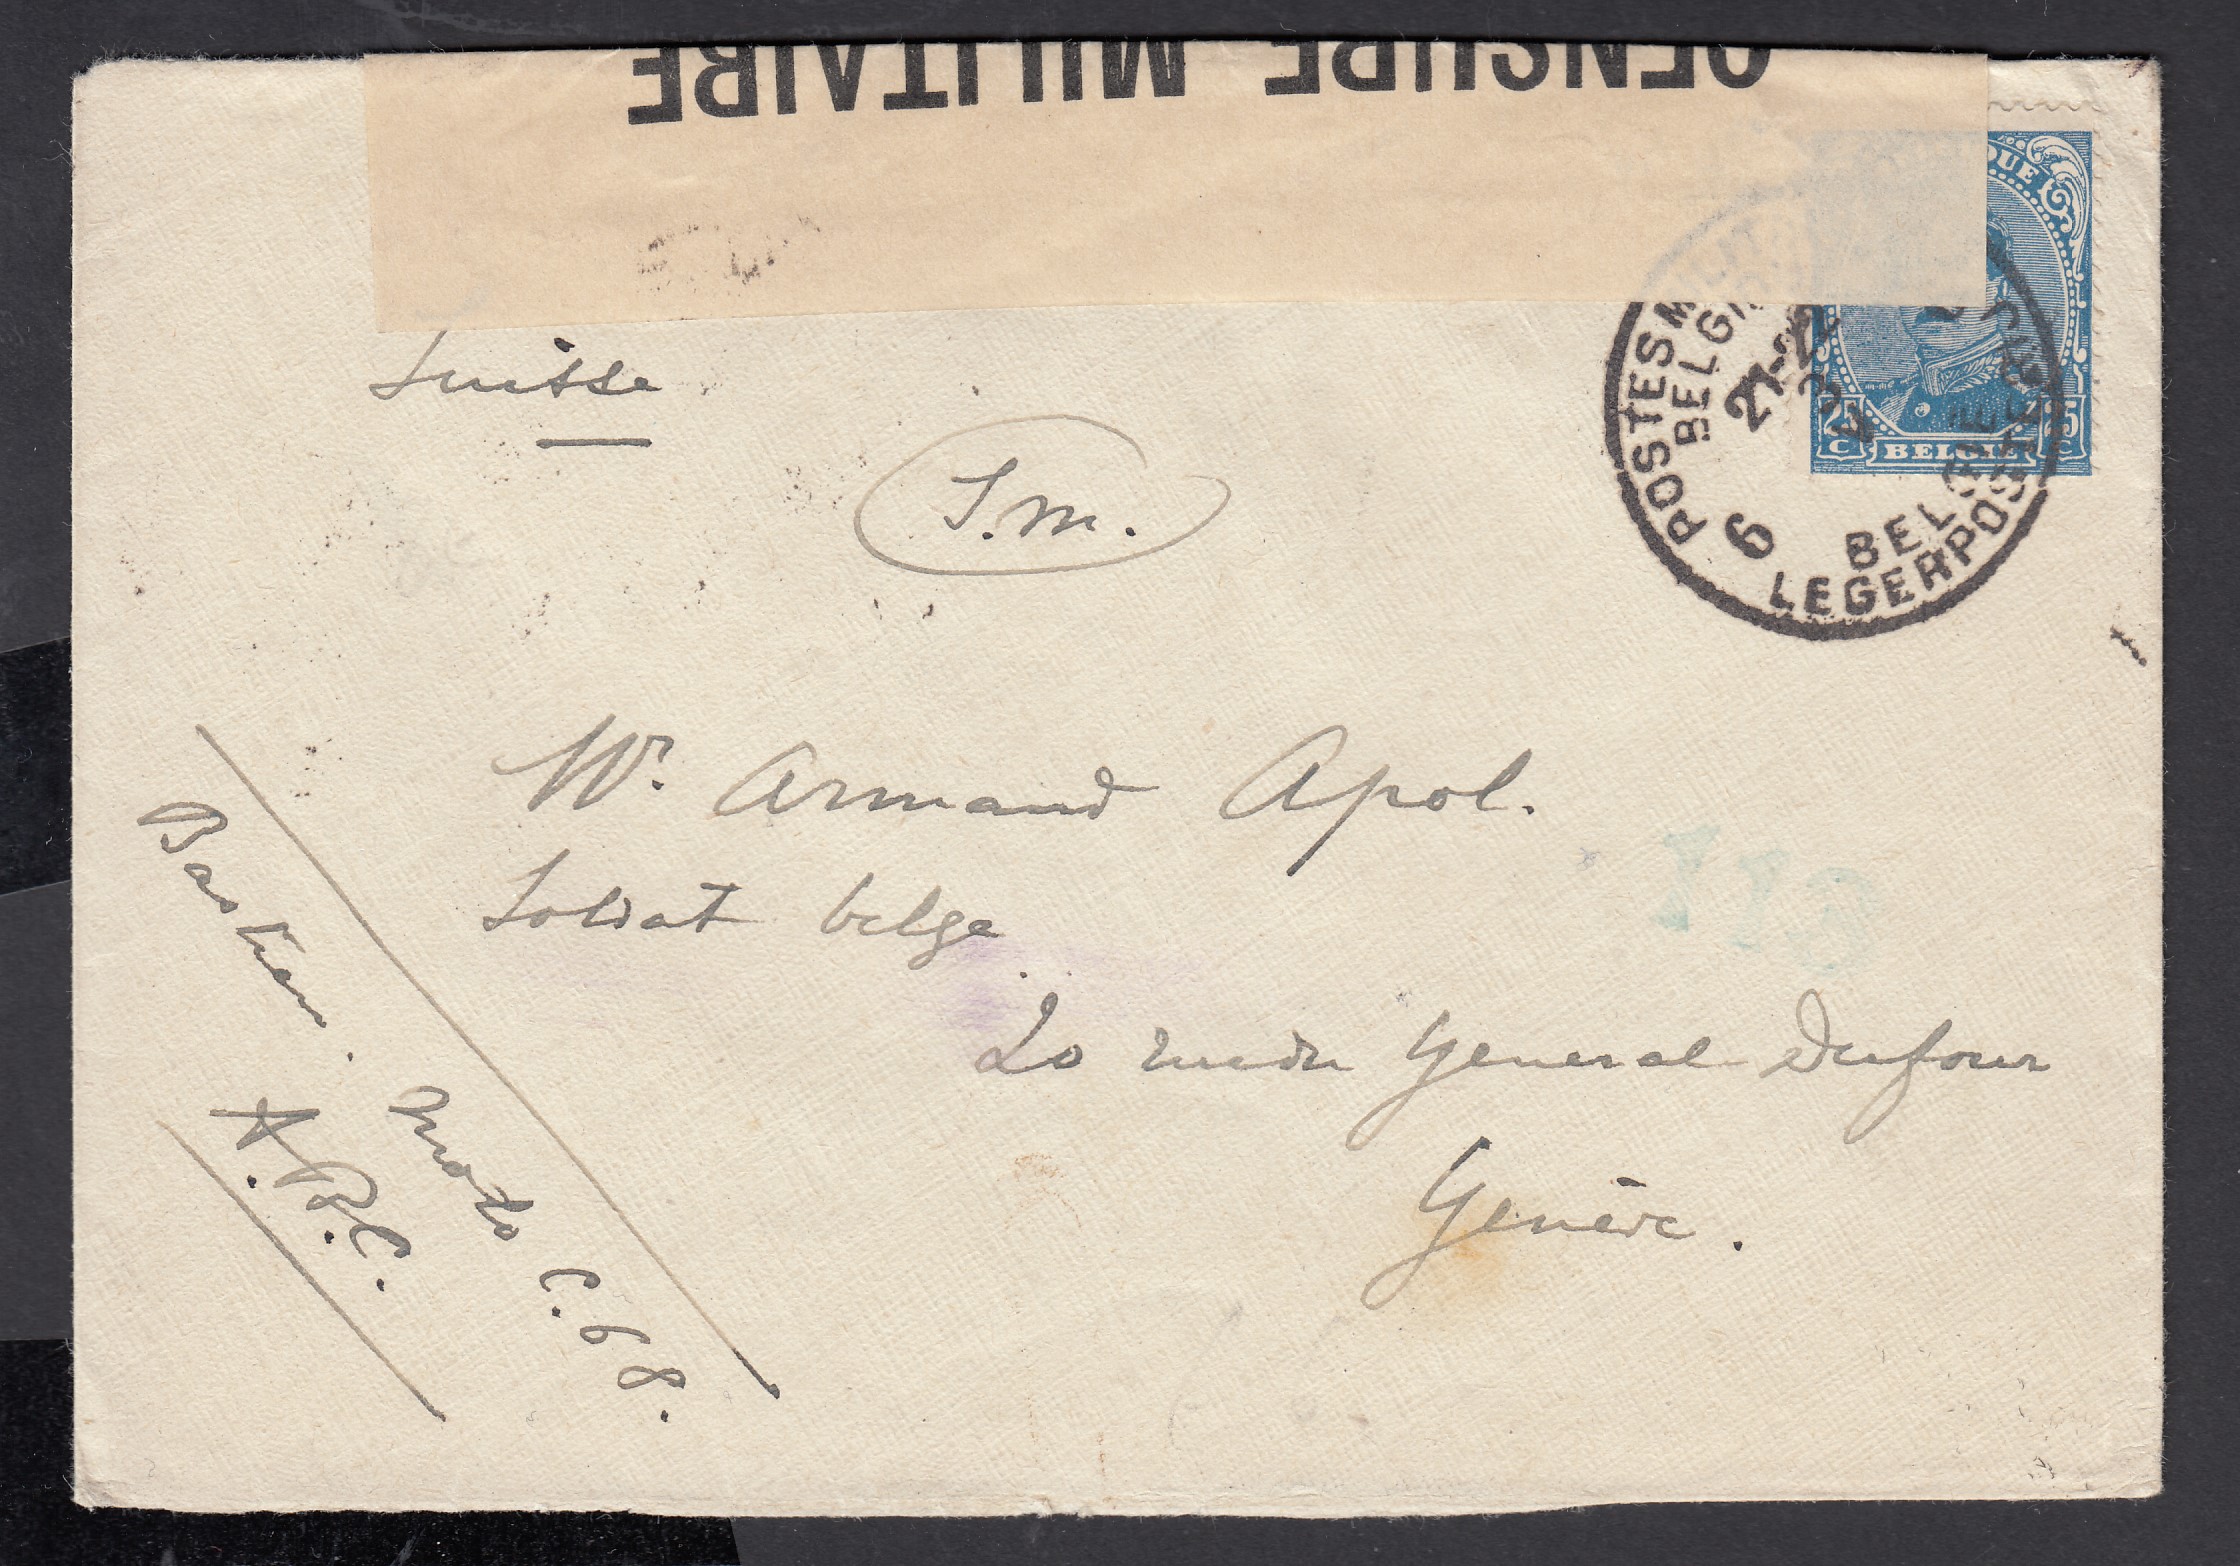 CENSURE MILITAIRE
QUE
25 C BELGIE 25 C
POSTES MILIT
BELGI
6
BELGIË
LEGERPOSTERIJ
Suisse
S.M.
Mr. Armand Apol.
Soldat belge
20 rue du General Dufour
Genève.
Bastien. Moto C.68.
A.B.C.